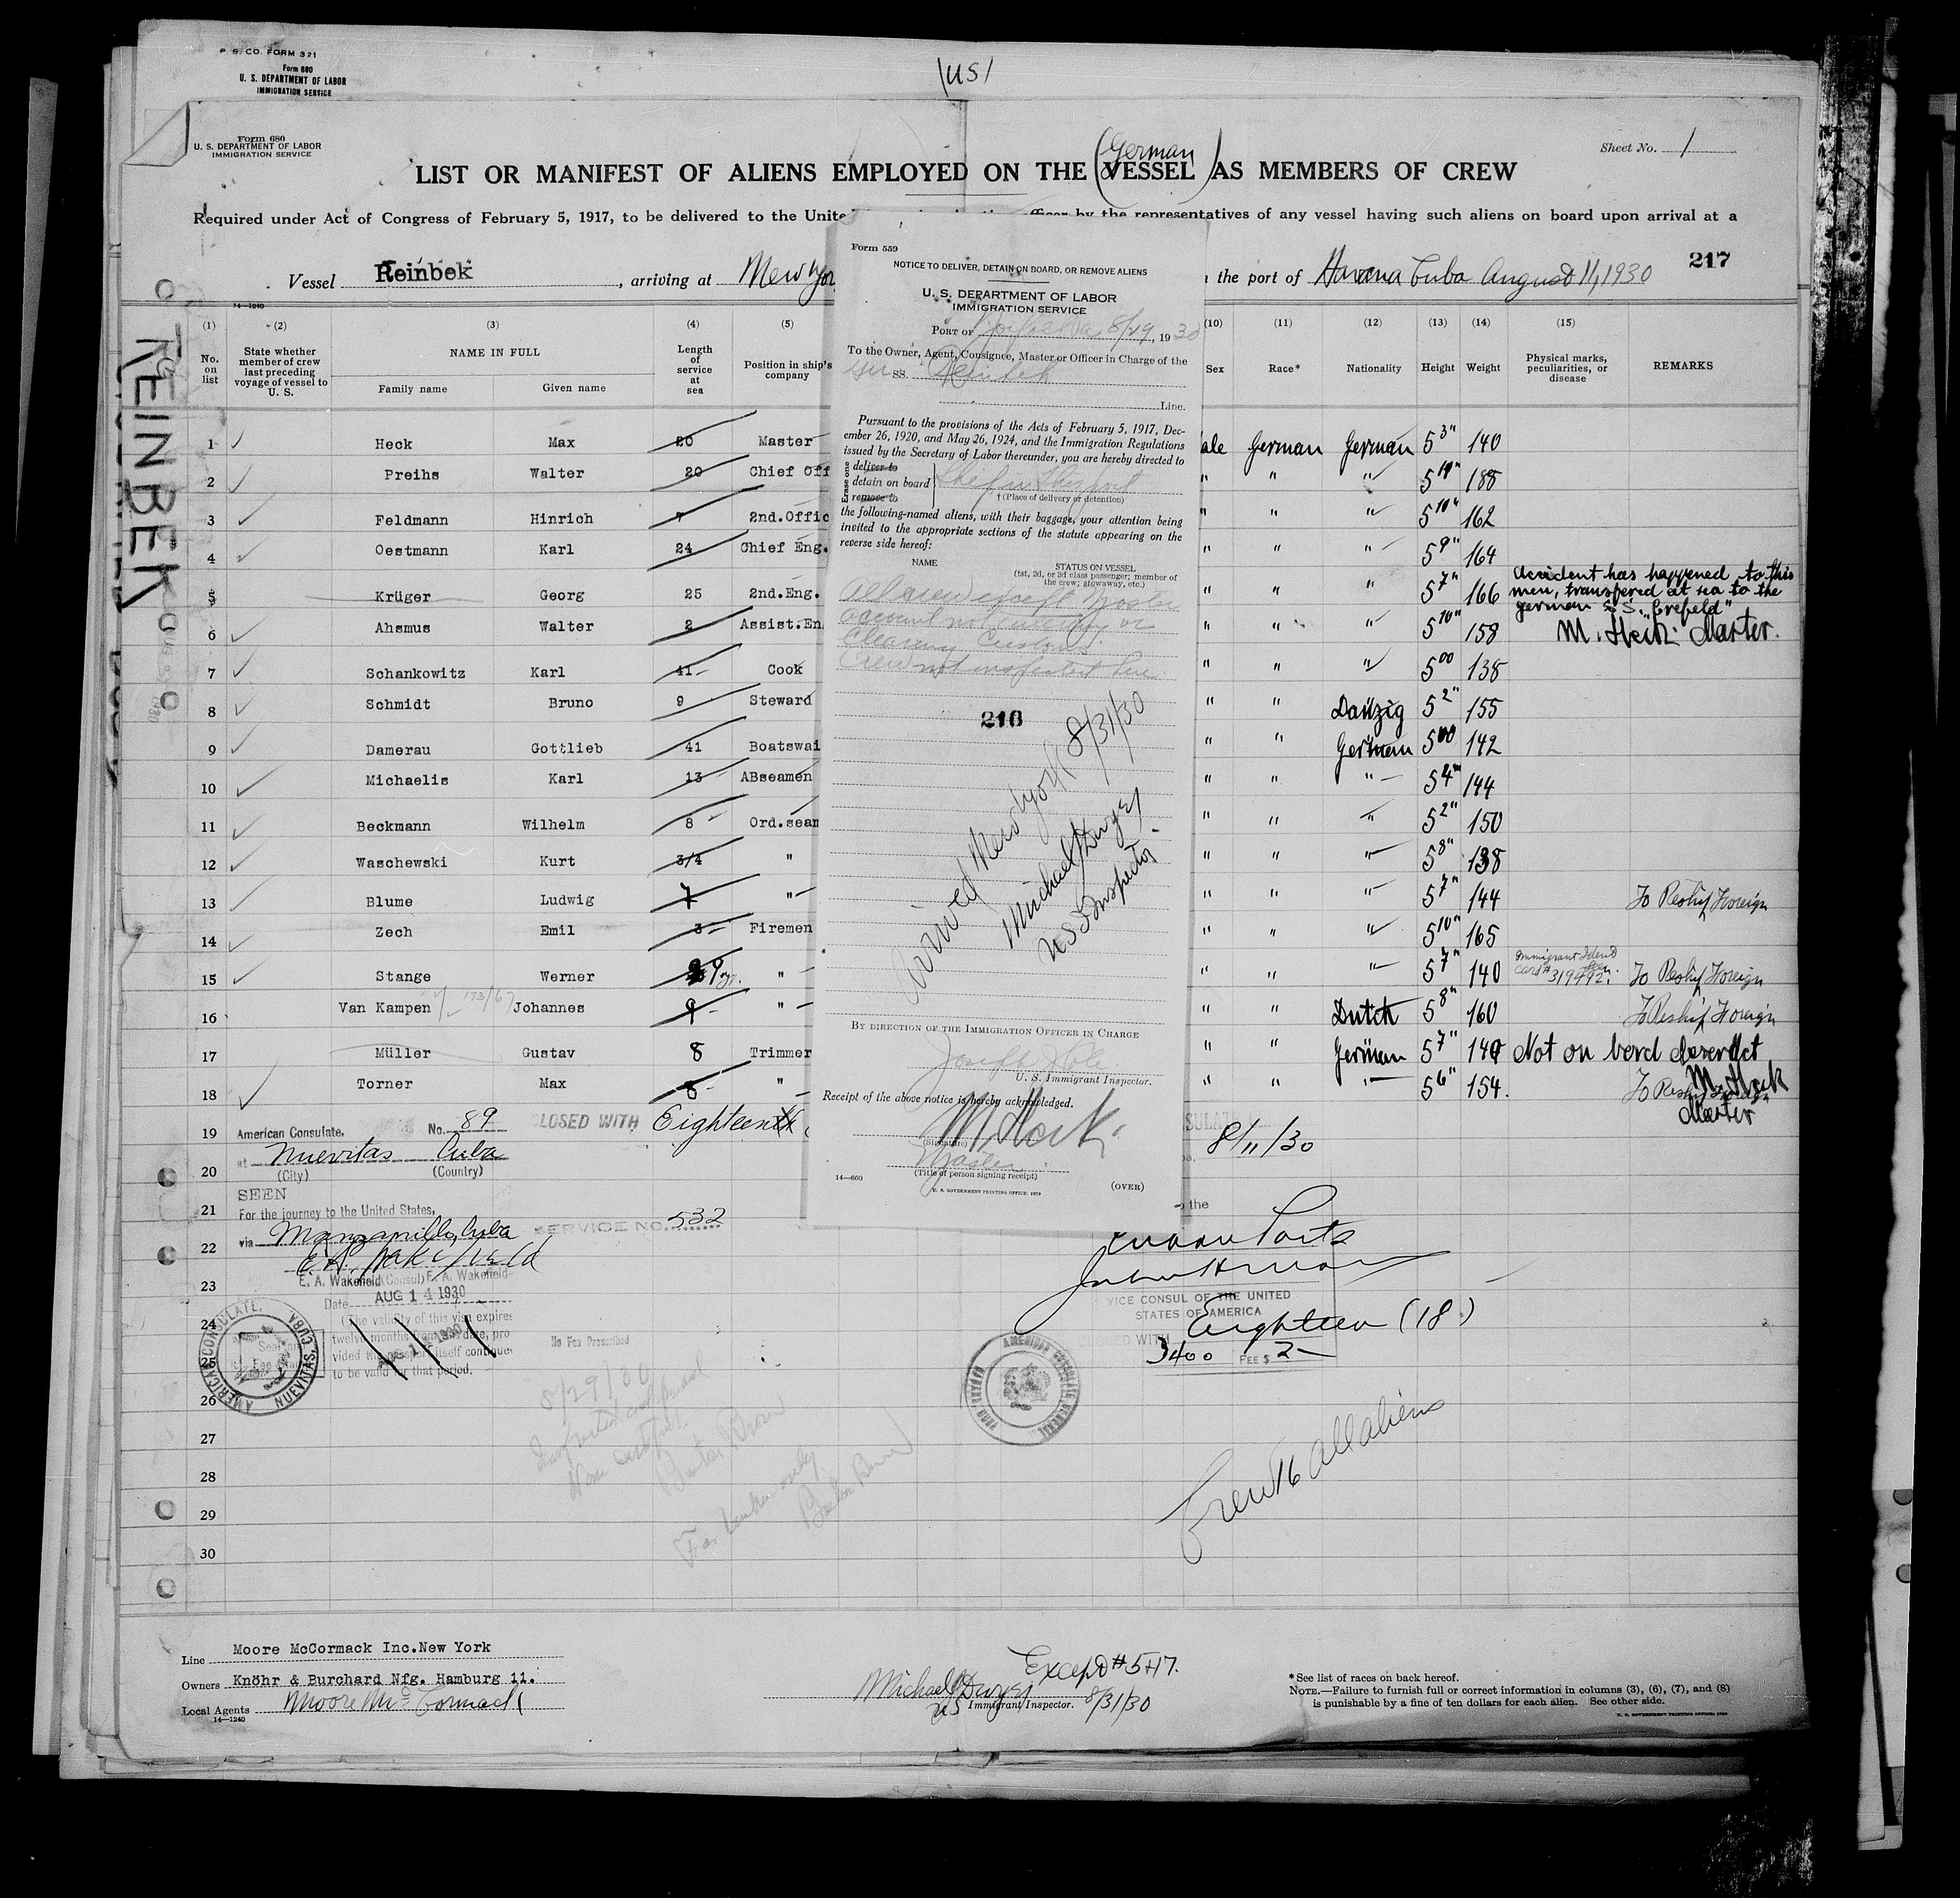 P. B. CO. FORM 321
Form 680
U. S. DEPARTMENT OF LABOR
IMMIGRATION SERVICE
\US/
Form 680
U. S. DEPARTMENT OF LABOR
IMMIGRATION SERVICE
Sheet No. 1
German
LIST OR MANIFEST OF ALIENS EMPLOYED ON THE (VESSEL) AS MEMBERS OF CREW
Required under Act of Congress of February 5, 1917, to be delivered to the Unite officer by the representatives of any vessel having such aliens on board upon arrival at a
217
Vessel Reinbek, arriving at New Yor the port of Havana Cuba August 11, 1930
14—1240
REINBEK
(1) (2) (3) (4) (5) (10) (11) (12) (13) (14) (15)
No. on list
State whether member of crew last preceding voyage of vessel to U. S.
NAME IN FULL
Family name Given name
Length of service at sea
Position in ship's company
Sex Race* Nationality Height Weight
Physical marks, peculiarities, or disease
REMARKS
1 Heck Max 20 Master ale German German 5 3" 140
2 Preihs Walter 20 Chief Off " " " 5 10" 188
3 Feldmann Hinrich 7 2nd.Offic " " " 5 10" 162
4 Oestmann Karl 24 Chief Eng. " " " 5 9" 164
5 Krüger Georg 25 2nd.Eng. " " " 5 7" 166 Accident has happened to this
men, transfered at sea to the
german S.S. "Crefeld"
6 Ahsmus Walter 2 Assist.En " " " 5 10" 158 M. Heck Master.
7 Schankowitz Karl 41 Cook " " " 5 00 138
8 Schmidt Bruno 9 Steward " " Danzig 5 2" 155
9 Damerau Gottlieb 41 Boatswai " " German 5 00 142
10 Michaelis Karl 13 ABseamen " " " 5 4" 144
11 Beckmann Wilhelm 8 Ord.seam " " " 5 2" 150
12 Waschewski Kurt 3/4 " " " " 5 8" 138
13 Blume Ludwig 7 " " " " 5 7" 144 To Reship Foreign
14 Zech Emil 3 Firemen " " " 5 10" 165
15 Stange Werner 9 yr. " " " " 5 7" 140 Immigrant Ident Card # 319492. To Reship Foreign
16 Van Kampen 173/67 Johannes 9 " " " Dutch 5 8" 160 To Reship Foreign
17 Müller Gustav 8 Trimmer " " German 5 7" 140 Not on bord
18 Torner Max 8 " " " " 5 6" 154. To Reship Foreign
M. Heck
Master
19 American Consulate. No. 89 CLOSED WITH Eighteen 8/11/30
20 at Nuevitas Cuba
(City) (Country)
SEEN
21 For the journey to the United States,
SERVICE NO. 532
22 via Manzanillo, Cuba
E. A. Wakefield
23 E. A. Wakefield (Consul) E. A. Wakefield
Date AUG 14 1930
24 (The validity of this visa expires
twelve months from date, pro
25 vided the passport itself continues
to be valid for that period.
No Fee Prescribed
AMERICAN CONSULATE, NUEVITAS, CUBA.
26
27
28
29
30
8/29/30
Form 559
NOTICE TO DELIVER, DETAIN ON BOARD, OR REMOVE ALIENS
U. S. DEPARTMENT OF LABOR
IMMIGRATION SERVICE
PORT OF Norfolk Va 8/29, 1930
To the Owner, Agent, Consignee, Master or Officer in Charge of the
Ger SS. Reinbek
Line.
Pursuant to the provisions of the Acts of February 5, 1917, December 26, 1920, and May 26, 1924, and the Immigration Regulations
issued by the Secretary of Labor thereunder, you are hereby directed to
Erase one
deliver to
detain on board
remove to
†(Place of delivery or detention)
the following-named aliens, with their baggage, your attention being
invited to the appropriate sections of the statute appearing on the
reverse side hereof:
NAME STATUS ON VESSEL
(1st, 2d, or 3d class passenger; member of
the crew; stowaway, etc.)
All crew except Master
account not entering or
clearing Customs.
Crew not inspected here.
216
Arrived New York 8/31/30
Michael J Dwyer
US Inspector.
BY DIRECTION OF THE IMMIGRATION OFFICER IN CHARGE
U. S. Immigrant Inspector.
Receipt of the above notice is hereby acknowledged.
M. Heck
(Signature)
Master
(Title of person signing receipt)
14—660
U. S. GOVERNMENT PRINTING OFFICE: 1929
(OVER)
VICE CONSUL OF THE UNITED
STATES OF AMERICA
Eighteen (18)
3400 FEE $ 2
AMERICAN CONSULATE GENERAL
Crew 16 all aliens
Line Moore McCormack Inc.New York
Owners Knöhr & Burchard Nfg. Hamburg 11.
Local Agents Moore Mc Cormack
14—1240
Except # 5+17.
Michael J Dwyer
US Immigrant Inspector. 8/31/30
*See list of races on back hereof.
NOTE.—Failure to furnish full or correct information in columns (3), (6), (7), and (8)
is punishable by a fine of ten dollars for each alien. See other side.
U. S. GOVERNMENT PRINTING OFFICE: 1929